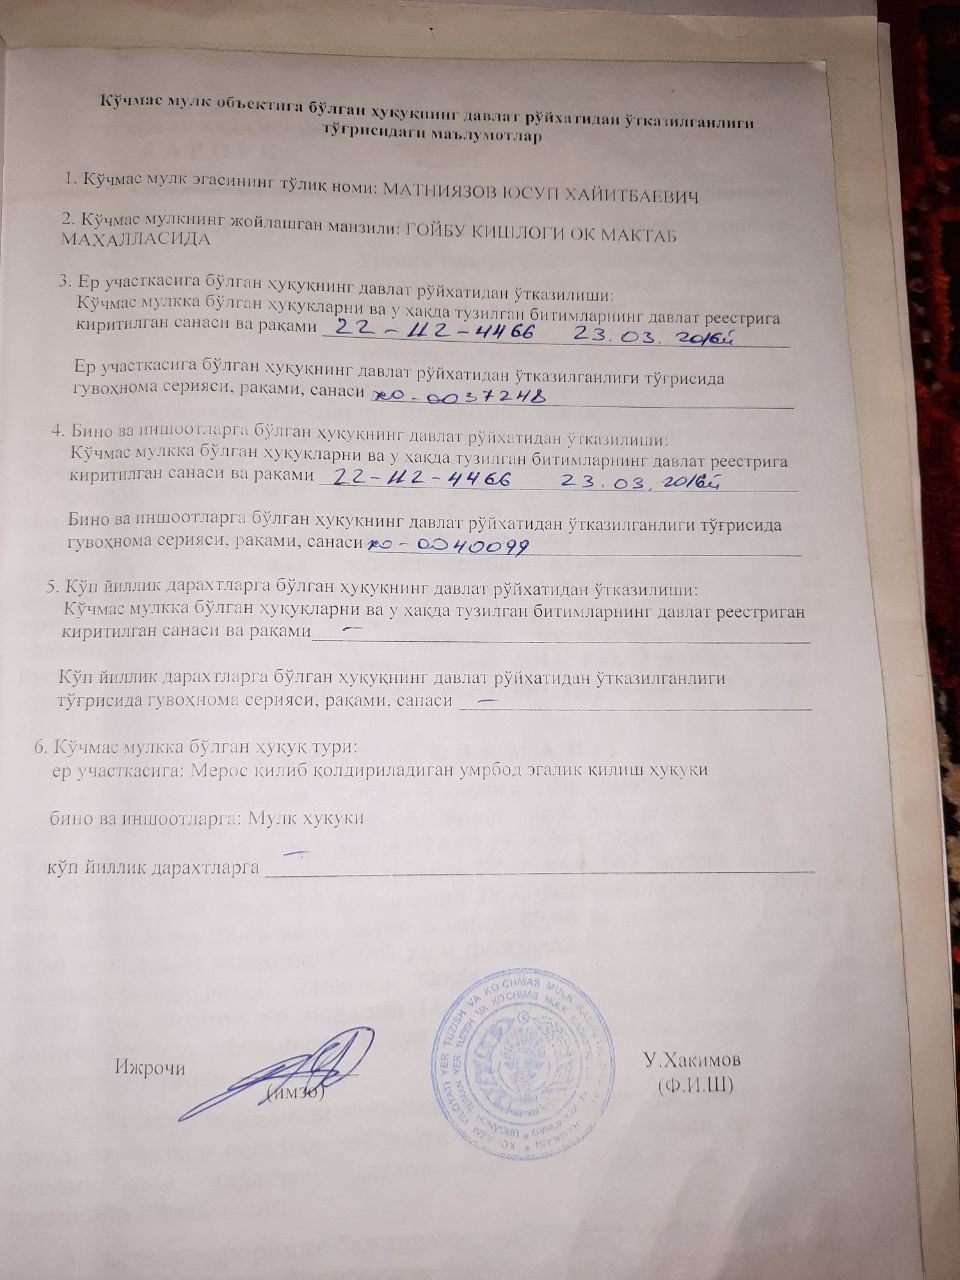 Кўчмас мулк объектига бўлган ҳуқуқнинг давлат рўйхатидан ўтказилганлиги
тўғрисидаги маълумотлар
1. Кўчмас мулк эгасининг тўлиқ номи: МАТНИЯЗОВ ЮСУП ХАЙИТБАЕВИЧ
2. Кўчмас мулкнинг жойлашган манзили: ГОЙБУ КИШЛОГИ ОК МАКТАБ
МАХАЛЛАСИДА
3. Ер участкасига бўлган ҳуқуқнинг давлат рўйхатидан ўтказилиши:
Кўчмас мулкка бўлган ҳуқуқларни ва у ҳақда тузилган битимларнинг давлат реестрига
киритилган санаси ва рақами 22-112-4466 23.03.2016й
Ер участкасига бўлган ҳуқуқнинг давлат рўйхатидан ўтказилганлиги тўғрисида
гувоҳнома серияси, рақами, санаси хо-0037248
4. Бино ва иншоотларга бўлган ҳуқуқнинг давлат рўйхатидан ўтказилиши:
Кўчмас мулкка бўлган ҳуқуқларни ва у ҳақда тузилган битимларнинг давлат реестрига
киритилган санаси ва рақами 22-112-4466 23.03.2016й
Бино ва иншоотларга бўлган ҳуқуқнинг давлат рўйхатидан ўтказилганлиги тўғрисида
гувоҳнома серияси, рақами, санаси хо-0040099
5. Кўп йиллик дарахтларга бўлган ҳуқуқнинг давлат рўйхатидан ўтказилиши:
Кўчмас мулкка бўлган ҳуқуқларни ва у ҳақда тузилган битимларнинг давлат реестриган
киритилган санаси ва рақами —
Кўп йиллик дарахтларга бўлган ҳуқуқнинг давлат рўйхатидан ўтказилганлиги
тўғрисида гувоҳнома серияси, рақами, санаси —
6. Кўчмас мулкка бўлган ҳуқуқ тури:
ер участкасига: Мерос қилиб қолдириладиган умрбод эгалик қилиш ҳуқуқи
бино ва иншоотларга: Мулк хукуки
кўп йиллик дарахтларга —
Ижрочи
(имзо)
У.Хакимов
(Ф.И.Ш)
VILOYATI YER TUZISH VA KO'CHMAS MULK
TUMAN YER TUZISH VA KO'CHMAS MULK